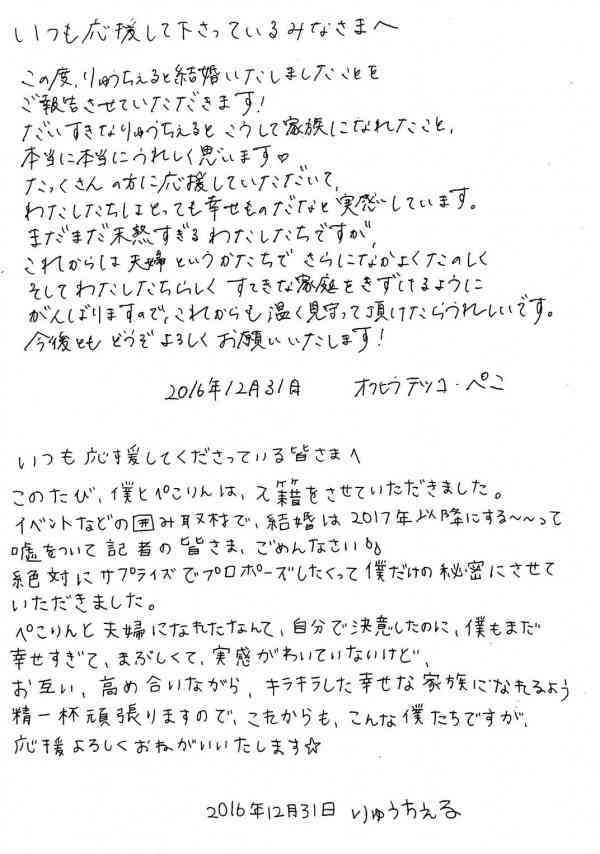 いつも応援して下さっているみなさまへ
この度、りゅうちぇると結婚いたしましたことを
ご報告させていただきます！
だいすきなりゅうちぇると こうして家族になれたこと、
本当に本当にうれしく思います♡
たっくさんの方に応援していただいて、
わたしたちはとっても幸せものだなと実感しています。
まだまだ未熟すぎるわたしたちですが、
これからは夫婦というかたちで さらになかよくたのしく
そしてわたしたちらしく すてきな家庭をきずけるように
がんばりますので、これからも温く見守って頂けたらうれしいです。
今後とも どうぞよろしくお願いいたします！
2016年12月31日 オクヒラテツコ・ぺこ
いつも応援してくださっている皆さまへ
このたび、僕とぺこりんは、入籍をさせていただきました。
イベントなどの囲み取材で、結婚は2017年以降にする〜〜って
嘘をついて記者の皆さま、ごめんなさい
絶対にサプライズでプロポーズしたくって僕だけの秘密にさせて
いただきました。
ぺこりんと夫婦になれたなんて、自分で決意したのに、僕もまだ
幸せすぎて、まぶしくて、実感がわいていないけど、
お互い、高め合いながら、キラキラした幸せな家族になれるよう
精一杯頑張りますので、これからも、こんな僕たちですが、
応援よろしくおねがいいたします☆
2016年12月31日 りゅうちぇる